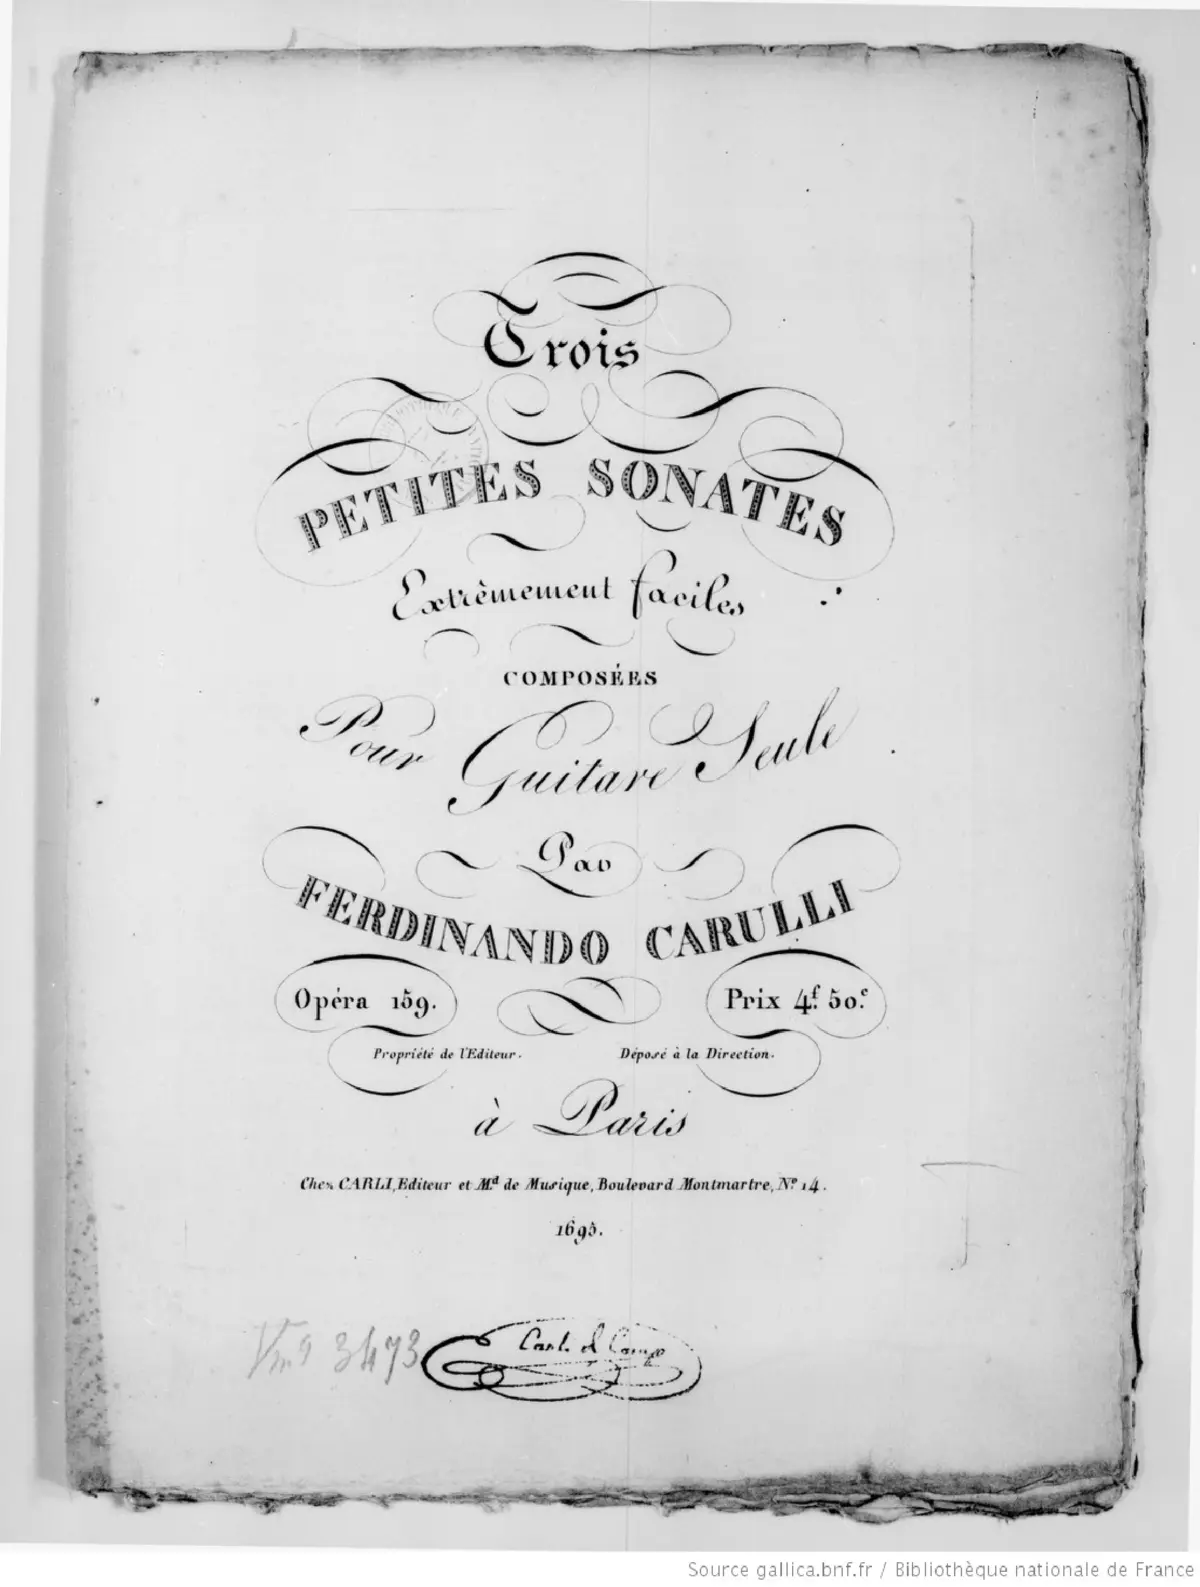 Trois
PETITES SONATES
Extrêmement faciles
COMPOSÉES
Pour Guitare Seule
Par
FERDINANDO CARULLI
Opéra 159.
Prix 4f. 50c.
Propriété de l'Editeur.
Déposé à la Direction.
à Paris
Chez CARLI, Editeur et Md. de Musique, Boulevard Montmartre, No. 14.
1695.
Vm9 3473
Source gallica.bnf.fr / Bibliothèque nationale de France